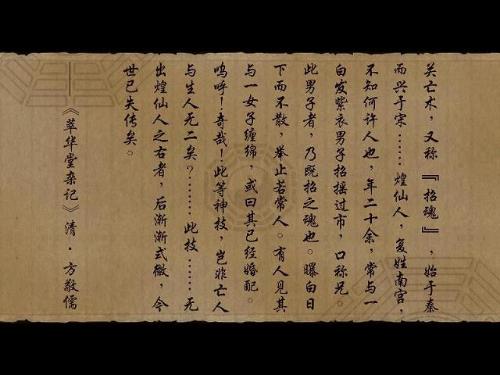 关亡术，又称『招魂』，始于秦
而兴于宋……煌仙人，复姓南宫，
不知何许人也，年二十余，常与一
白发紫衣男子招摇过市，口称兄。
此男子者，乃既招之魂也。曝白日
下而不散，举止若常人。有人见其
与一女子缠绵，或曰其已经婚配。
呜呼！奇哉！此等神技，岂非亡人
与生人无二矣？……此技……无
出煌仙人之右者，后渐渐式微，今
世已失传矣。
《萃华堂杂记》清·方敬儒